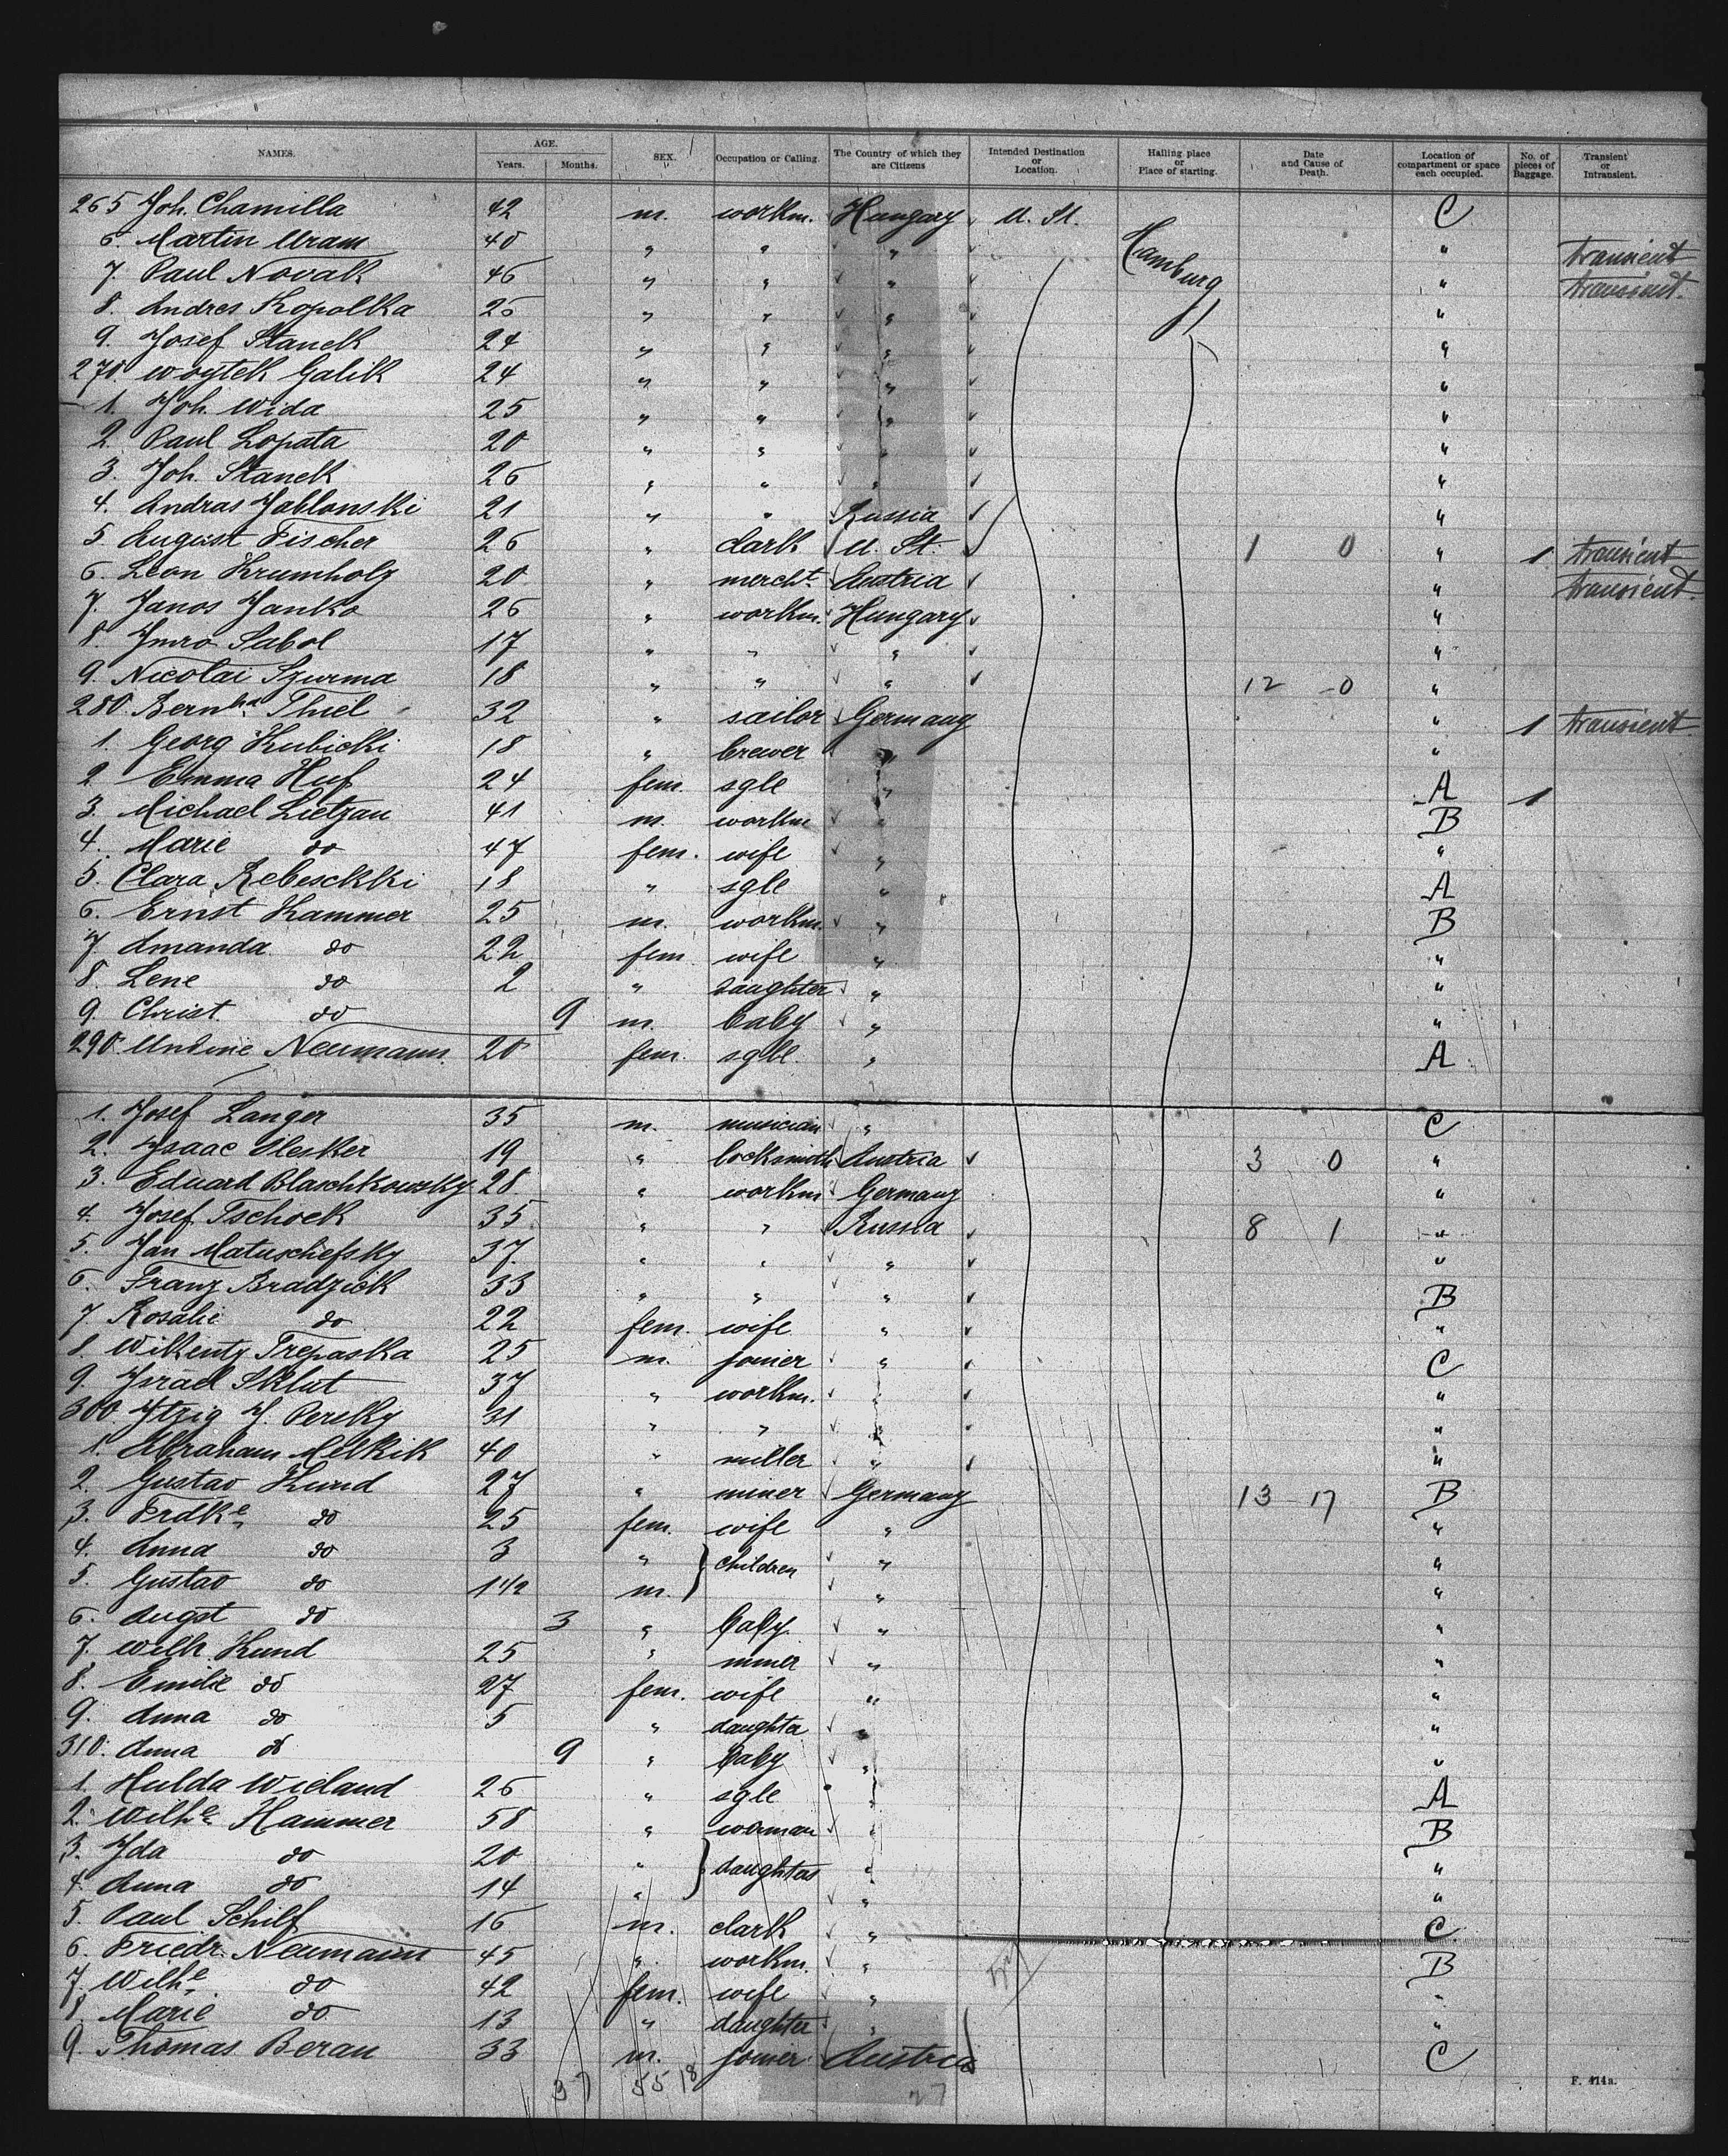 NAMES. AGE. Years. Months. SEX. Occupation or Calling. The Country of which they are Citizens Intended Destination or Location. Hailing place or Place of starting. Date and Cause of Death. Location of compartment or space each occupied. No. of pieces of Baggage. Transient or Intransient.
265 Joh. Chamilla 42 m. workm. Hungary U. St. C
6. Martin Uram 40 " " " Hamburg " transient
7. Paul Novak 46 " " " " transient
8. Andres Kopolka 25 " " " "
9. Josef Stanek 24 " " " "
270. Woytek Galik 24 " " " "
1. Joh. Wida 25 " " " "
2. Paul Lopata 20 " " " "
3. Joh. Stanek 26 " " " "
4. Andras Jablonski 21 " " Russia "
5. August Fischer 26 " clark U. St. 1 0 " 1 transient
6. Leon Krumholz 20 " mercht. Austria " transient
7. Janos Janko 26 " workm. Hungary "
8. Imro Sabol 17 " " " "
9. Nicolai Szurma 18 " " " 12 - 0 "
280. Bernhd. Thiel 32 " sailor Germany " 1 transient
1. Georg Kubicki 18 " brewer " "
2. Emma Huf 24 fem. sgle " A 1
3. Michael Lietzau 41 m. workm " B
4. Marie do 47 fem. wife " "
5. Clara Rebeschki 18 " sgle " A
6. Ernst Kammer 25 m. workm. " B
7. Amanda do 22 fem wife " "
8. Lene do 2 " daughter " "
9. Christ. do 9 m. baby " "
290. Undine Neumann 20 fem. sgle. " A
1. Josef Langer 35 m. musician " C
2. Isaac Olesker 19 " locksmith Austria 3 0 "
3. Eduard Blaschkowsky 28. " workm Germany "
4. Josef Tschock 35. " " Russia 8 1 "
5. Jan Matuschefsky 37. " " " "
6. Franz Bradzick 33 " " " B
7. Rosalie do 22 fem. wife " "
8. Wikenty Trepaska 25 m. joiner " C
9. Israel Sklut 37 " workm. " "
300. Itzig J. Perelky 31 " " " "
1. Abraham Melkik 40 " miller " "
2. Gustav Kund 27 " miner Germany 13 - 17 B
3. Frdke. do 25 fem. wife " "
4. Anna do 3 " } children " "
5. Gustav do 1 1/2 m. " "
6. Augst do 3 " baby " "
7. Wilh. Kund 25 " miner " "
8. Emilie do 27 fem. wife " "
9. Anna do 5 " daughter " "
310. Anna do 9 " baby " "
1. Hulda Wieland 26 " sgle " A
2. Wilhe. Hammer 58 " woman " B
3. Ida do 20 " } daughters " "
4. Anna do 14 " " "
5. Paul Schilf 16 m. clark " C
6. Friedr. Neumann 45 " workm. " B
7. Wilhe. do 42 fem. wife " "
8. Marie do 13 " daughter " "
9. Thomas Beran 33 m. joiner Austria C
37 55 18 27
F. 414a.